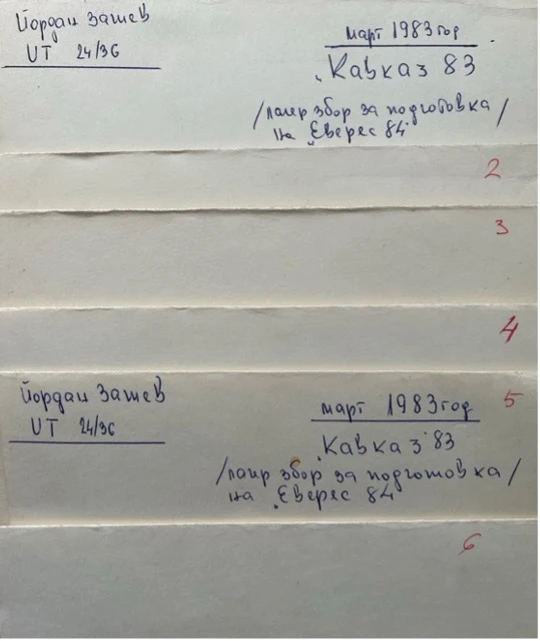 Йордан Зашев
UT 24/36
март 1983 год
„Кавказ 83
/лагер збор за подготовка/
на „Еверес 84"
2
3
4
5
Йордан Зашев
UT 24/36
март 1983 год
„Кавказ '83
/лагер збор за подготовка/
на „Еверес 84"
6